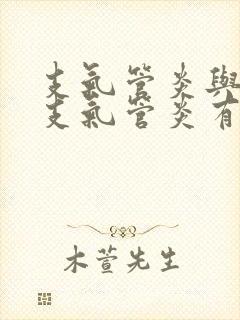 支氣管炎與
支氣管炎有
木萱先生